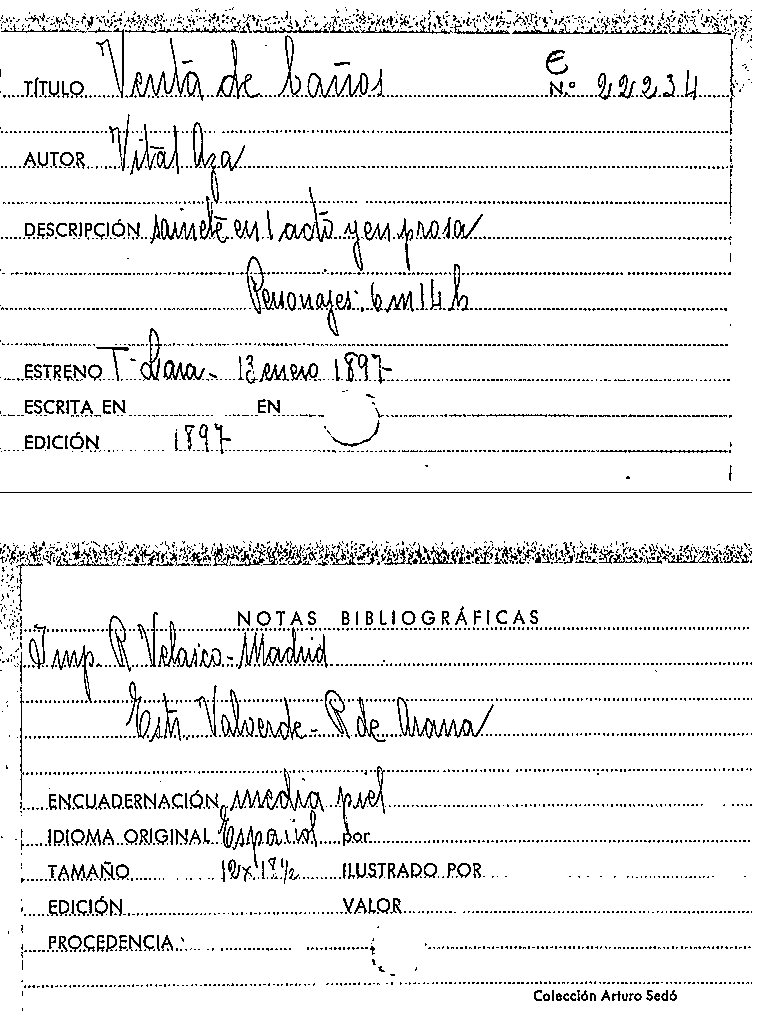 e
TÍTULO Venta de baños N.º 22234
AUTOR Vital Aza
DESCRIPCIÓN sainete en 1 acto y en prosa
Personajes: 6 m 14 h
ESTRENO Tº Lara - 13 enero 1897
ESCRITA EN EN
EDICIÓN 1897
NOTAS BIBLIOGRÁFICAS
Imp. R Velasco - Madrid
Estr. Valverde - R de Arana
ENCUADERNACIÓN media piel
IDIOMA ORIGINAL Español por
TAMAÑO 12 x 18½ ILUSTRADO POR
EDICIÓN VALOR
PROCEDENCIA
Colección Arturo Sedó